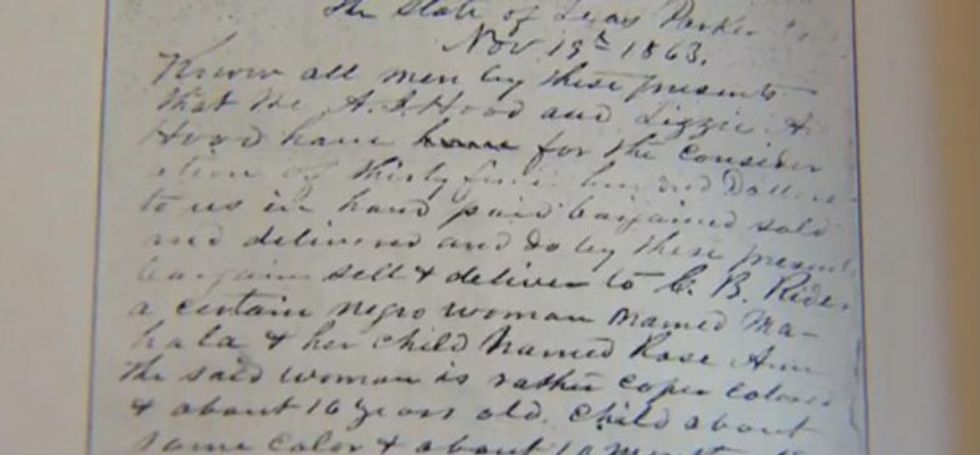 The State of Texas Parker Co
Nov. 19th 1863.
Know all men by these presents
that We A. J. Hood and Lizzie H
Hood have have for the consider
ation of thirty five hundred Dollars
to us in hand paid bargained sold
and delivered and do by these presents
bargain sell & deliver to C. B. Rider
a certain negro woman named Ma-
hala & her child named Rose Ann
The said woman is rather coper colored
& about 16 years old. Child about
same color & about 10 months